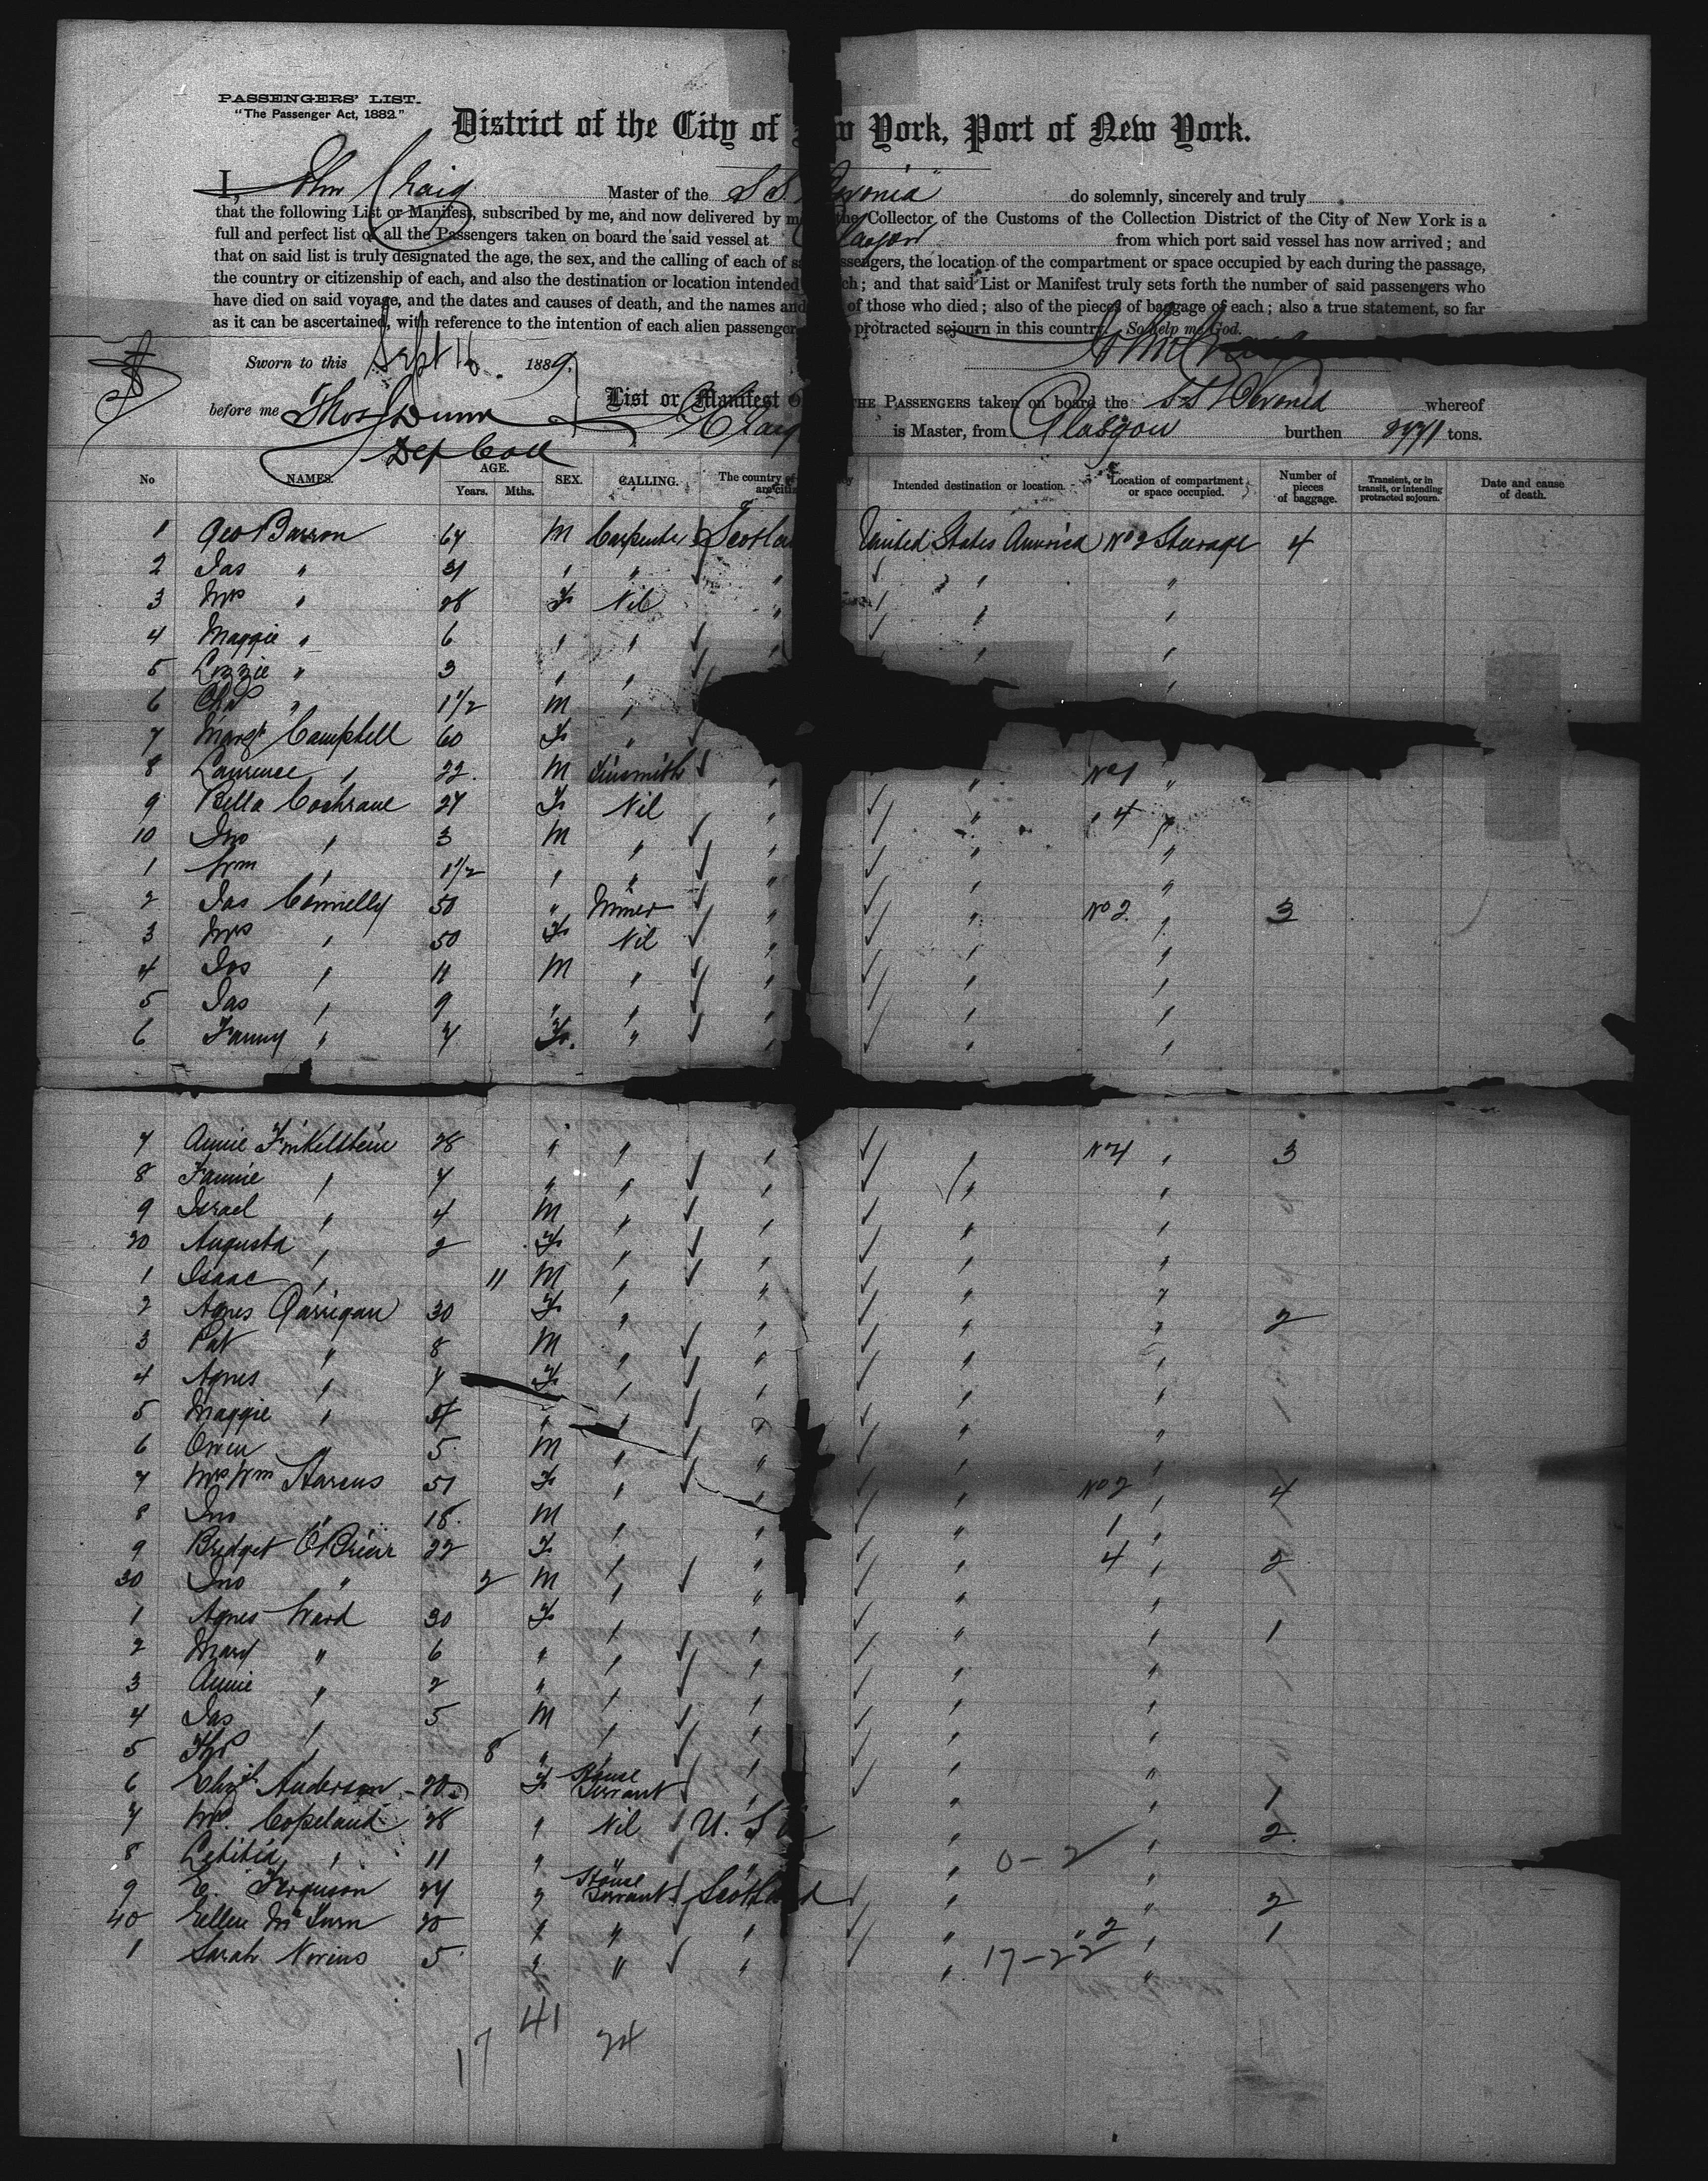 PASSENGERS' LIST.
"The Passenger Act, 1882."
District of the City of New York, Port of New York.
I, Jhn Craig Master of the S.S. Devonia do solemnly, sincerely and truly
that the following List or Manifest, subscribed by me, and now delivered by me the Collector of the Customs of the Collection District of the City of New York is a
full and perfect list of all the Passengers taken on board the said vessel at Glasgow from which port said vessel has now arrived; and
that on said list is truly designated the age, the sex, and the calling of each of said passengers, the location of the compartment or space occupied by each during the passage,
the country or citizenship of each, and also the destination or location intended each; and that said List or Manifest truly sets forth the number of said passengers who
have died on said voyage, and the dates and causes of death, and the names and of those who died; also of the pieces of baggage of each; also a true statement, so far
as it can be ascertained, with reference to the intention of each alien passenger protracted sojourn in this country. So help me God.
Sworn to this Sept 16 1889. Jhn Craig
before me Thos Dunn List or Manifest of THE PASSENGERS taken on board the S.S Devonia whereof
Dep Coll Craig is Master, from Glasgow burthen tons.
No NAMES. AGE. Years. Mths. SEX. CALLING. The country of Intended destination or location. Location of compartment or space occupied. Number of pieces of baggage. Transient, or in transit, or intending protracted sojourn. Date and cause of death.
1 Geo Barron 64 M Carpenter Scotland United States America No 2 Steerage 4
2 Jas " 31 " " " " "
3 Mrs " 28 F Nil " " "
4 Maggie " 6 " " " " "
5 Lizzie " 3 " " "
6 Chs " 1 1/2 M "
7 Margt Campbell 60 F "
8 Laurence " 22 M Tinsmith " " No 1 "
9 Bella Cochrane 27 F Nil " " " 4 "
10 Jno " 3 M " " " "
1 Wm " 1 1/2 " " " " "
2 Jas Connelly 50 " Miner " " No 2 " 3
3 Mrs " 50 F Nil " " "
4 Jos " 11 M " " " "
5 Jas " 9 " " " " "
6 Fanny " 7 F. " " " "
7 Annie Finkelstein 28 " " " " No 4 " 3
8 Fannie " 7 " " " " "
9 Israel " 4 M " " " "
20 Augusta " 2 F " " " "
1 Isaac " 11 M " " " "
2 Agnes Garrigan 30 F " " " " 2
3 Pat " 8 M " " " "
4 Agnes " 7 F " " " "
5 Maggie " " " " " "
6 Owen " 5 M " " " "
7 Mrs Wm Starcus 51 F " " " No 2 " 4
8 Jno " 18 M " " " 1 "
9 Bridget O'Brien 22 F " " " 4 " 2
30 Jno " 2 M " " " "
1 Agnes Ward 30 F " " " " 1
2 Mary " 6 " " " " "
3 Annie " 2 " " " " "
4 Jas " 5 M " " " "
5 Ths " 8 " " " " "
6 Elizth Anderson 20 F House Servant " " " 1
7 Mrs. Copeland 28 " Nil U. S " " 2
8 Letitia " 11 " " " " 0-2 "
9 E. Ferguson 24 " House Servant Scotland " " 2
40 Ellen Mc 20 " " " " " 2 " 1
1 Sarah 5 " " " " 17-22 "
41
17 24